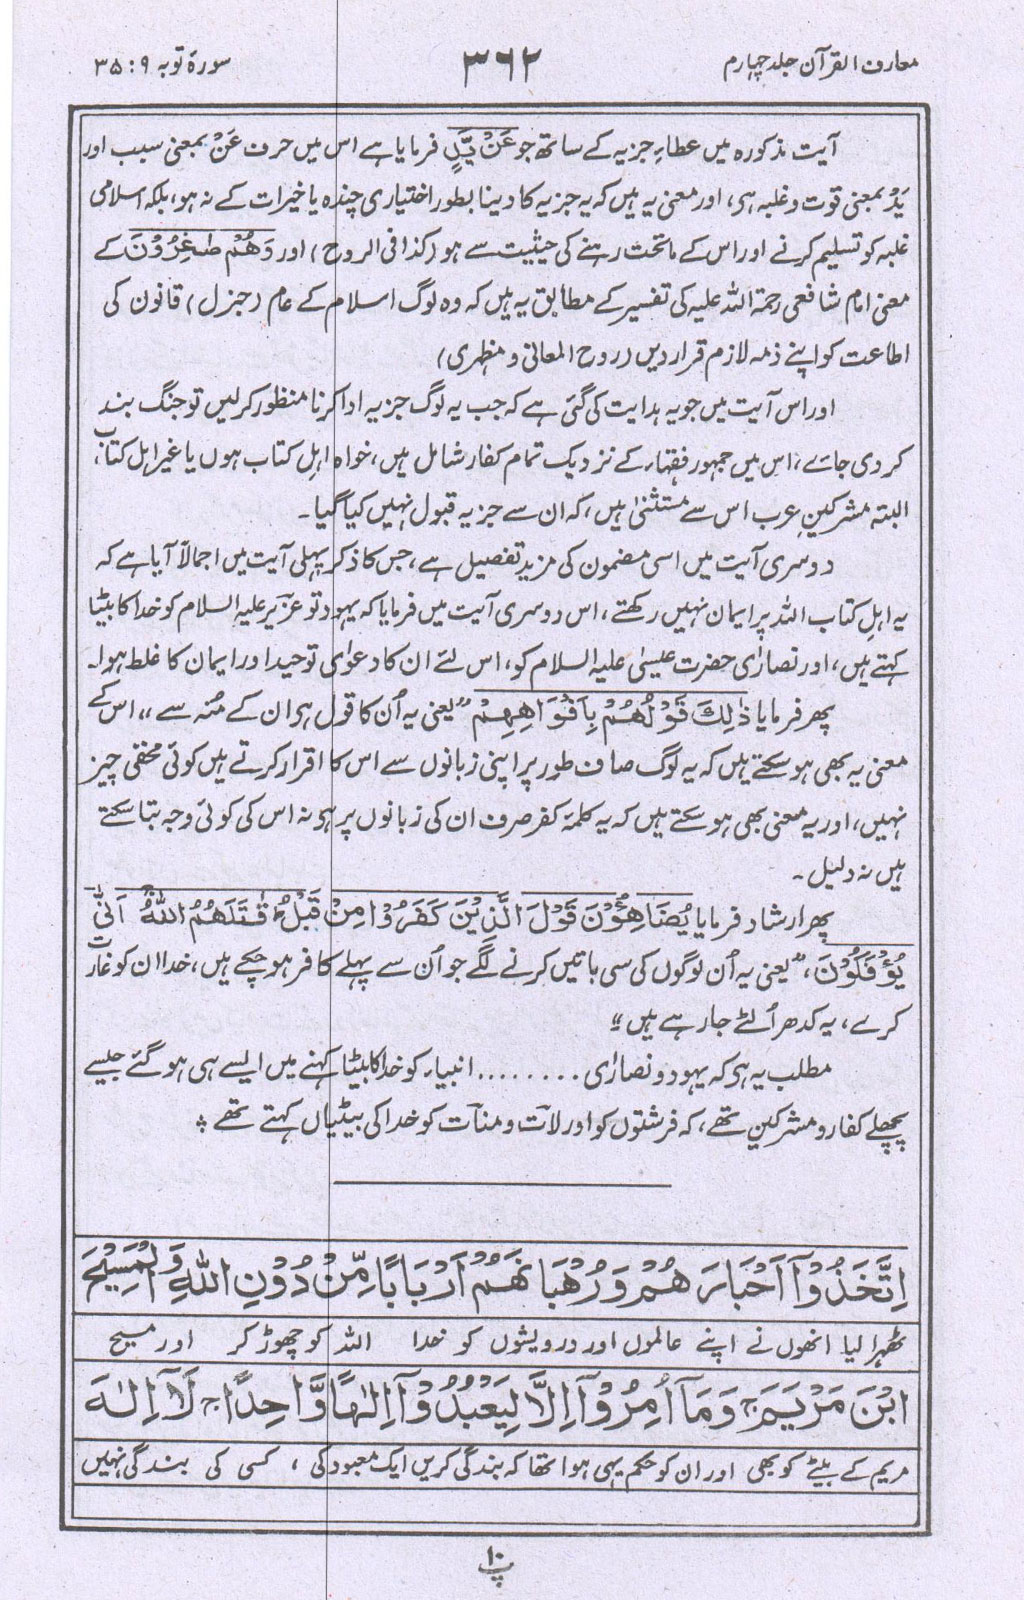 معارف القرآن جلد چہارم
۳۶۲
سورۂ توبہ ۹ : ۳۵
آیت مذکورہ میں عطاءِ جزیہ کے ساتھ جو عَنْ یَّدٍ فرمایا ہے اس میں حرف عَنْ بمعنی سبب اور
یَدْ بمعنی قوت و غلبہ ہی، اور معنی یہ ہیں کہ یہ جزیہ کا دینا بطور اختیاری چندہ یا خیرات کے نہ ہو، بلکہ اسلامی
غلبہ کو تسلیم کرنے اور اس کے ماتحت رہنے کی حیثیت سے ہو (کذا فی الروح) اور وَھُمْ صٰغِرُوْنَ کے
معنی امام شافعی رحمۃ اللہ علیہ کی تفسیر کے مطابق یہ ہیں کہ وہ لوگ اسلام کے عام (جنرل) قانون کی
اطاعت کو اپنے ذمہ لازم قرار دیں (روح المعانی و مظہری)
اور اس آیت میں جو یہ ہدایت کی گئی ہے کہ جب یہ لوگ جزیہ ادا کرنا منظور کرلیں تو جنگ بند
کر دی جائے، اس میں جمہور فقہاء کے نزدیک تمام کفار شامل ہیں، خواہ اہل کتاب ہوں یا غیر اہل کتاب،
البتہ مشرکین عرب اس سے مستثنیٰ ہیں، کہ ان سے جزیہ قبول نہیں کیا گیا۔
دوسری آیت میں اسی مضمون کی مزید تفصیل ہے، جس کا ذکر پہلی آیت میں اجمالاً آیا ہے کہ
یہ اہل کتاب اللہ پر ایمان نہیں رکھتے، اس دوسری آیت میں فرمایا کہ یہود تو عزیر علیہ السلام کو خدا کا بیٹا
کہتے ہیں، اور نصارٰی حضرت عیسیٰ علیہ السلام کو، اس لئے ان کا دعوٰی توحید اور ایمان کا غلط ہوا۔
پھر فرمایا ذٰلِكَ قَوْلُھُمْ بِاَفْوَاھِھِمْ "یعنی یہ اُن کا قول ہی ان کے مُنہ سے" اس کے
معنی یہ بھی ہو سکتے ہیں کہ یہ لوگ صاف طور پر اپنی زبانوں سے اس کا اقرار کرتے ہیں کوئی مخفی چیز
نہیں، اور یہ معنی بھی ہو سکتے ہیں کہ یہ کلمۂ کفر صرف ان کی زبانوں پر ہی نہ اس کی کوئی وجہ بتا سکتے
ہیں نہ دلیل۔
پھر ارشاد فرمایا یُضَاھِئُوْنَ قَوْلَ الَّذِیْنَ كَفَرُوْا مِنْ قَبْلُ قٰتَلَھُمُ اللہُ اَنّٰی
یُؤْفَكُوْنَ، "یعنی یہ اُن لوگوں کی سی باتیں کرنے لگے جو اُن سے پہلے کافر ہو چکے ہیں، خدا ان کو غارت
کرے، یہ کدھر اُلٹے جا رہے ہیں"
مطلب یہ ہی کہ یہود و نصارٰی ........ انبیاء کو خدا کا بیٹا کہنے میں ایسے ہی ہو گئے جیسے
پچھلے کفار و مشرکین تھے، کہ فرشتوں کو اور لات و منات کو خدا کی بیٹیاں کہتے تھے ؞
اِتَّخَذُوْٓا اَحْبَارَھُمْ وَرُھْبَانَھُمْ اَرْبَابًا مِّنْ دُوْنِ اللہِ وَالْمَسِیْحَ
ٹھہرا لیا انھوں نے اپنے عالموں اور درویشوں کو خدا اللہ کو چھوڑ کر اور مسیح
ابْنَ مَرْیَمَ ۚ وَمَآ اُمِرُوْٓا اِلَّا لِیَعْبُدُوْٓا اِلٰھًا وَّاحِدًا ۚ لَآ اِلٰهَ
مریم کے بیٹے کو بھی اور ان کو حکم یہی ہوا تھا کہ بندگی کریں ایک معبود کی، کسی کی بندگی نہیں
پ ۱۰